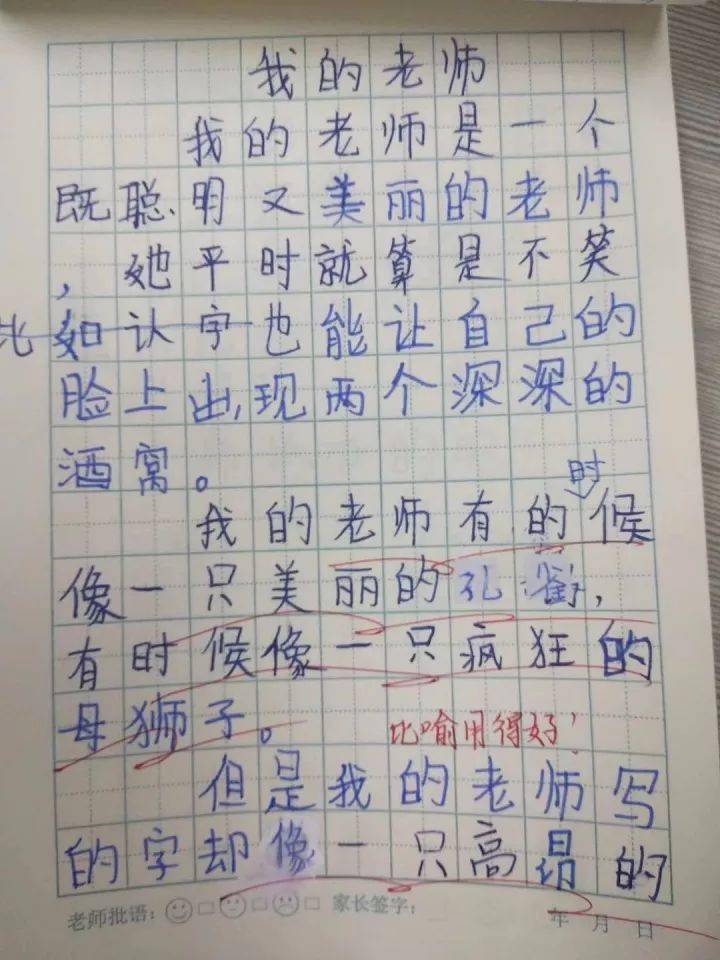 我的老师
我的老师是一个
既聪明又美丽的老师
，她平时就算是不笑
比如认字也能让自己的
脸上出现两个深深的
酒窝。
时
我的老师有的候
像一只美丽的孔雀，
有时候像一只疯狂的
母狮子。
比喻用得好！
但是我的老师写
的字却像一只高昂的
老师批语：□□□ 家长签字： 年 月 日